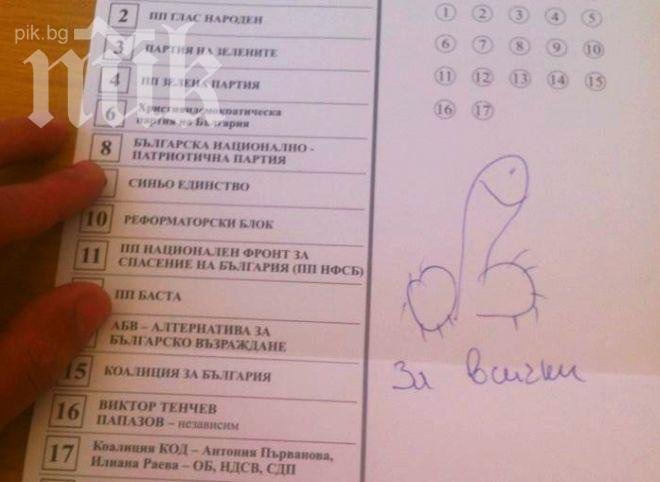 pik.bg
пик
2 ПП ГЛАС НАРОДЕН
3 ПАРТИЯ НА ЗЕЛЕНИТЕ
4 ПП ЗЕЛЕНА ПАРТИЯ
6 Християндемократическа
партия на България
8 БЪЛГАРСКА НАЦИОНАЛНО -
ПАТРИОТИЧНА ПАРТИЯ
СИНЬО ЕДИНСТВО
10 РЕФОРМАТОРСКИ БЛОК
11 ПП НАЦИОНАЛЕН ФРОНТ ЗА
СПАСЕНИЕ НА БЪЛГАРИЯ (ПП НФСБ)
ПП БАСТА
АБВ – АЛТЕРНАТИВА ЗА
БЪЛГАРСКО ВЪЗРАЖДАНЕ
15 КОАЛИЦИЯ ЗА БЪЛГАРИЯ
16 ВИКТОР ТЕНЧЕВ
ПАПАЗОВ – независим
17 Коалиция КОД – Антония Първанова,
Илиана Раева – ОБ, НДСВ, СДП
1 2 3 4 5
6 7 8 9 10
11 12 13 14 15
16 17
За всички